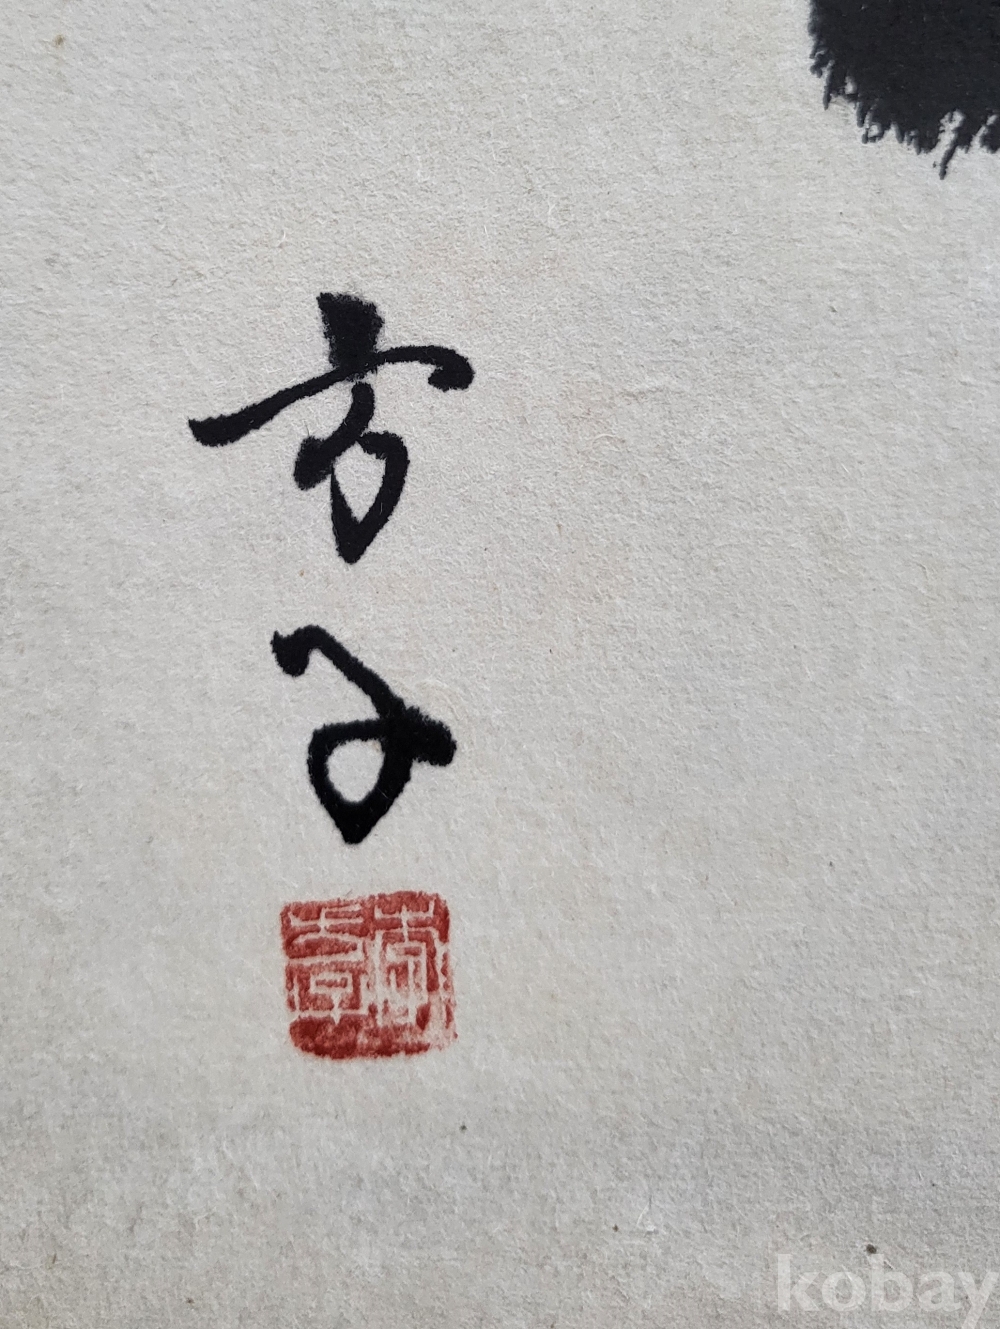 方子
kobay